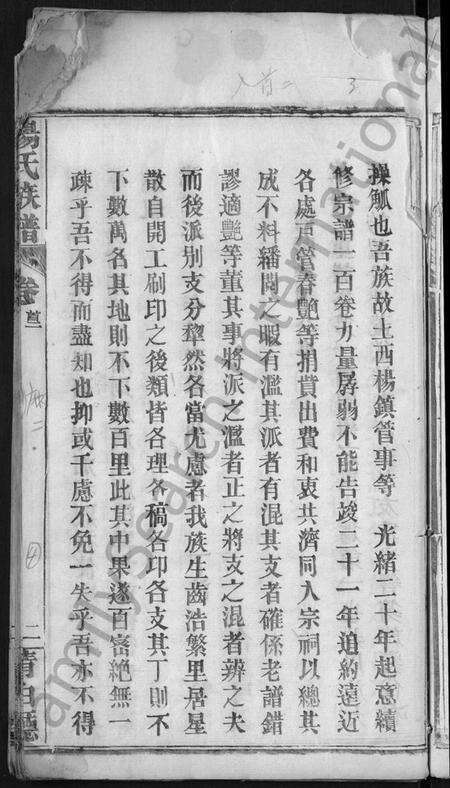 操觚也吾族故土西楊鎮管事等　光緒二十年起意續
修宗譜一百卷力量孱弱不能告竣二十一年追約遠近
各處戶管春艷等捐貲出費和衷共濟同入宗祠以總其
成不料繙閱之暇有濫其派者有混其支者確係老譜錯
謬適艷等董其事將派之濫者正之將支之混者辨之夫
而後派別支分犂然各當尤慮者我族生齒浩繁里居星
散自開工刷印之後類皆各理各稿各印各支其丁則不
下數萬名其地則不下數百里此其中果遂百密絕無一
疎乎吾不得而盡知也抑或千慮不免一失乎吾亦不得
楊氏族譜
卷首
二
清白堂
人首二
3
FamilySearch International